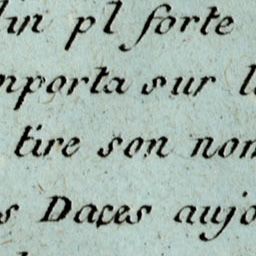 lin pl forte
mporta sur l
tire son nom
s Daces aujo